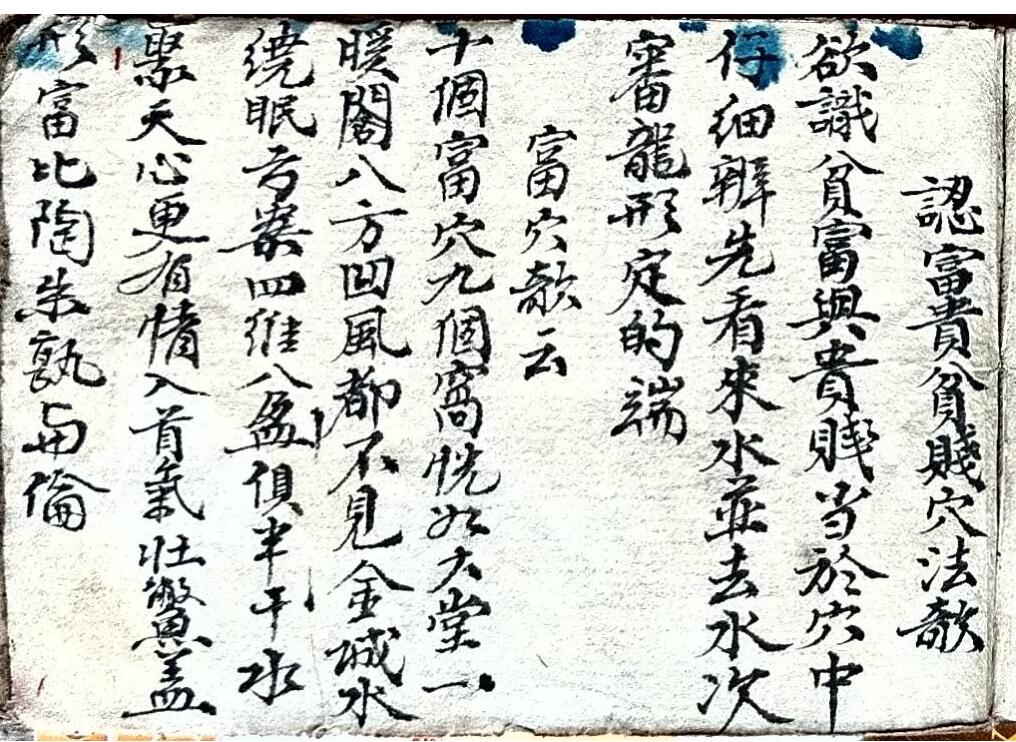 認富貴貧賤穴法歌
欲識貧富與貴賤当於穴中
仔細辨先看來水並去水次
審龍形定的端
富穴歌云
十個富穴九個窩恍如大堂一
暖閣八方凹風都不見金城水
繞眠弓案四維八 俱半干水
聚天心更有情入首氣壮鱉盖
形富比陶朱孰与倫